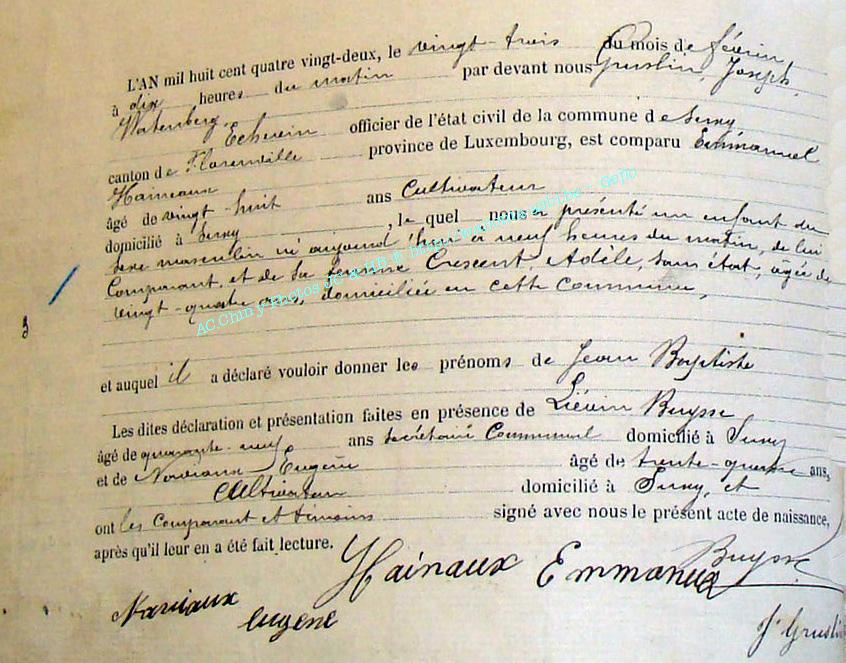 L'AN mil huit cent quatre vingt-deux, le vingt-trois du mois de février
à dix heures du matin par devant nous Gruslin, Joseph,
Watenberg, Echevin officier de l'état civil de la commune de Suxy
canton de Florenville province de Luxembourg, est comparu Emmanuel
Haineaux
âgé de vingt huit ans Cultivateur
domicilié à Suxy, le quel nous a présenté un enfant du
sexe masculin né aujourd'hui à neuf heures du matin, de lui
Comparant, et de sa femme Crescent, Adèle, sans état, âgée de
vingt-quatre ans, domiciliée en cette Commune,
et auquel il a déclaré vouloir donner les prénoms de Jean Baptiste
Les dites déclaration et présentation faites en présence de Liévin Buysse
âgé de quarante-neuf ans secrétaire Communal domicilié à Suxy
et de Noviaux Eugène âgé de trente-quatre ans,
Cultivateur domicilié à Suxy, et
ont les Comparant et témoins signé avec nous le présent acte de naissance,
après qu'il leur en a été fait lecture.
Hainaux Emmanuel Buysse
Naviaux
eugene
J. Gruslin
AC Chiny Photos